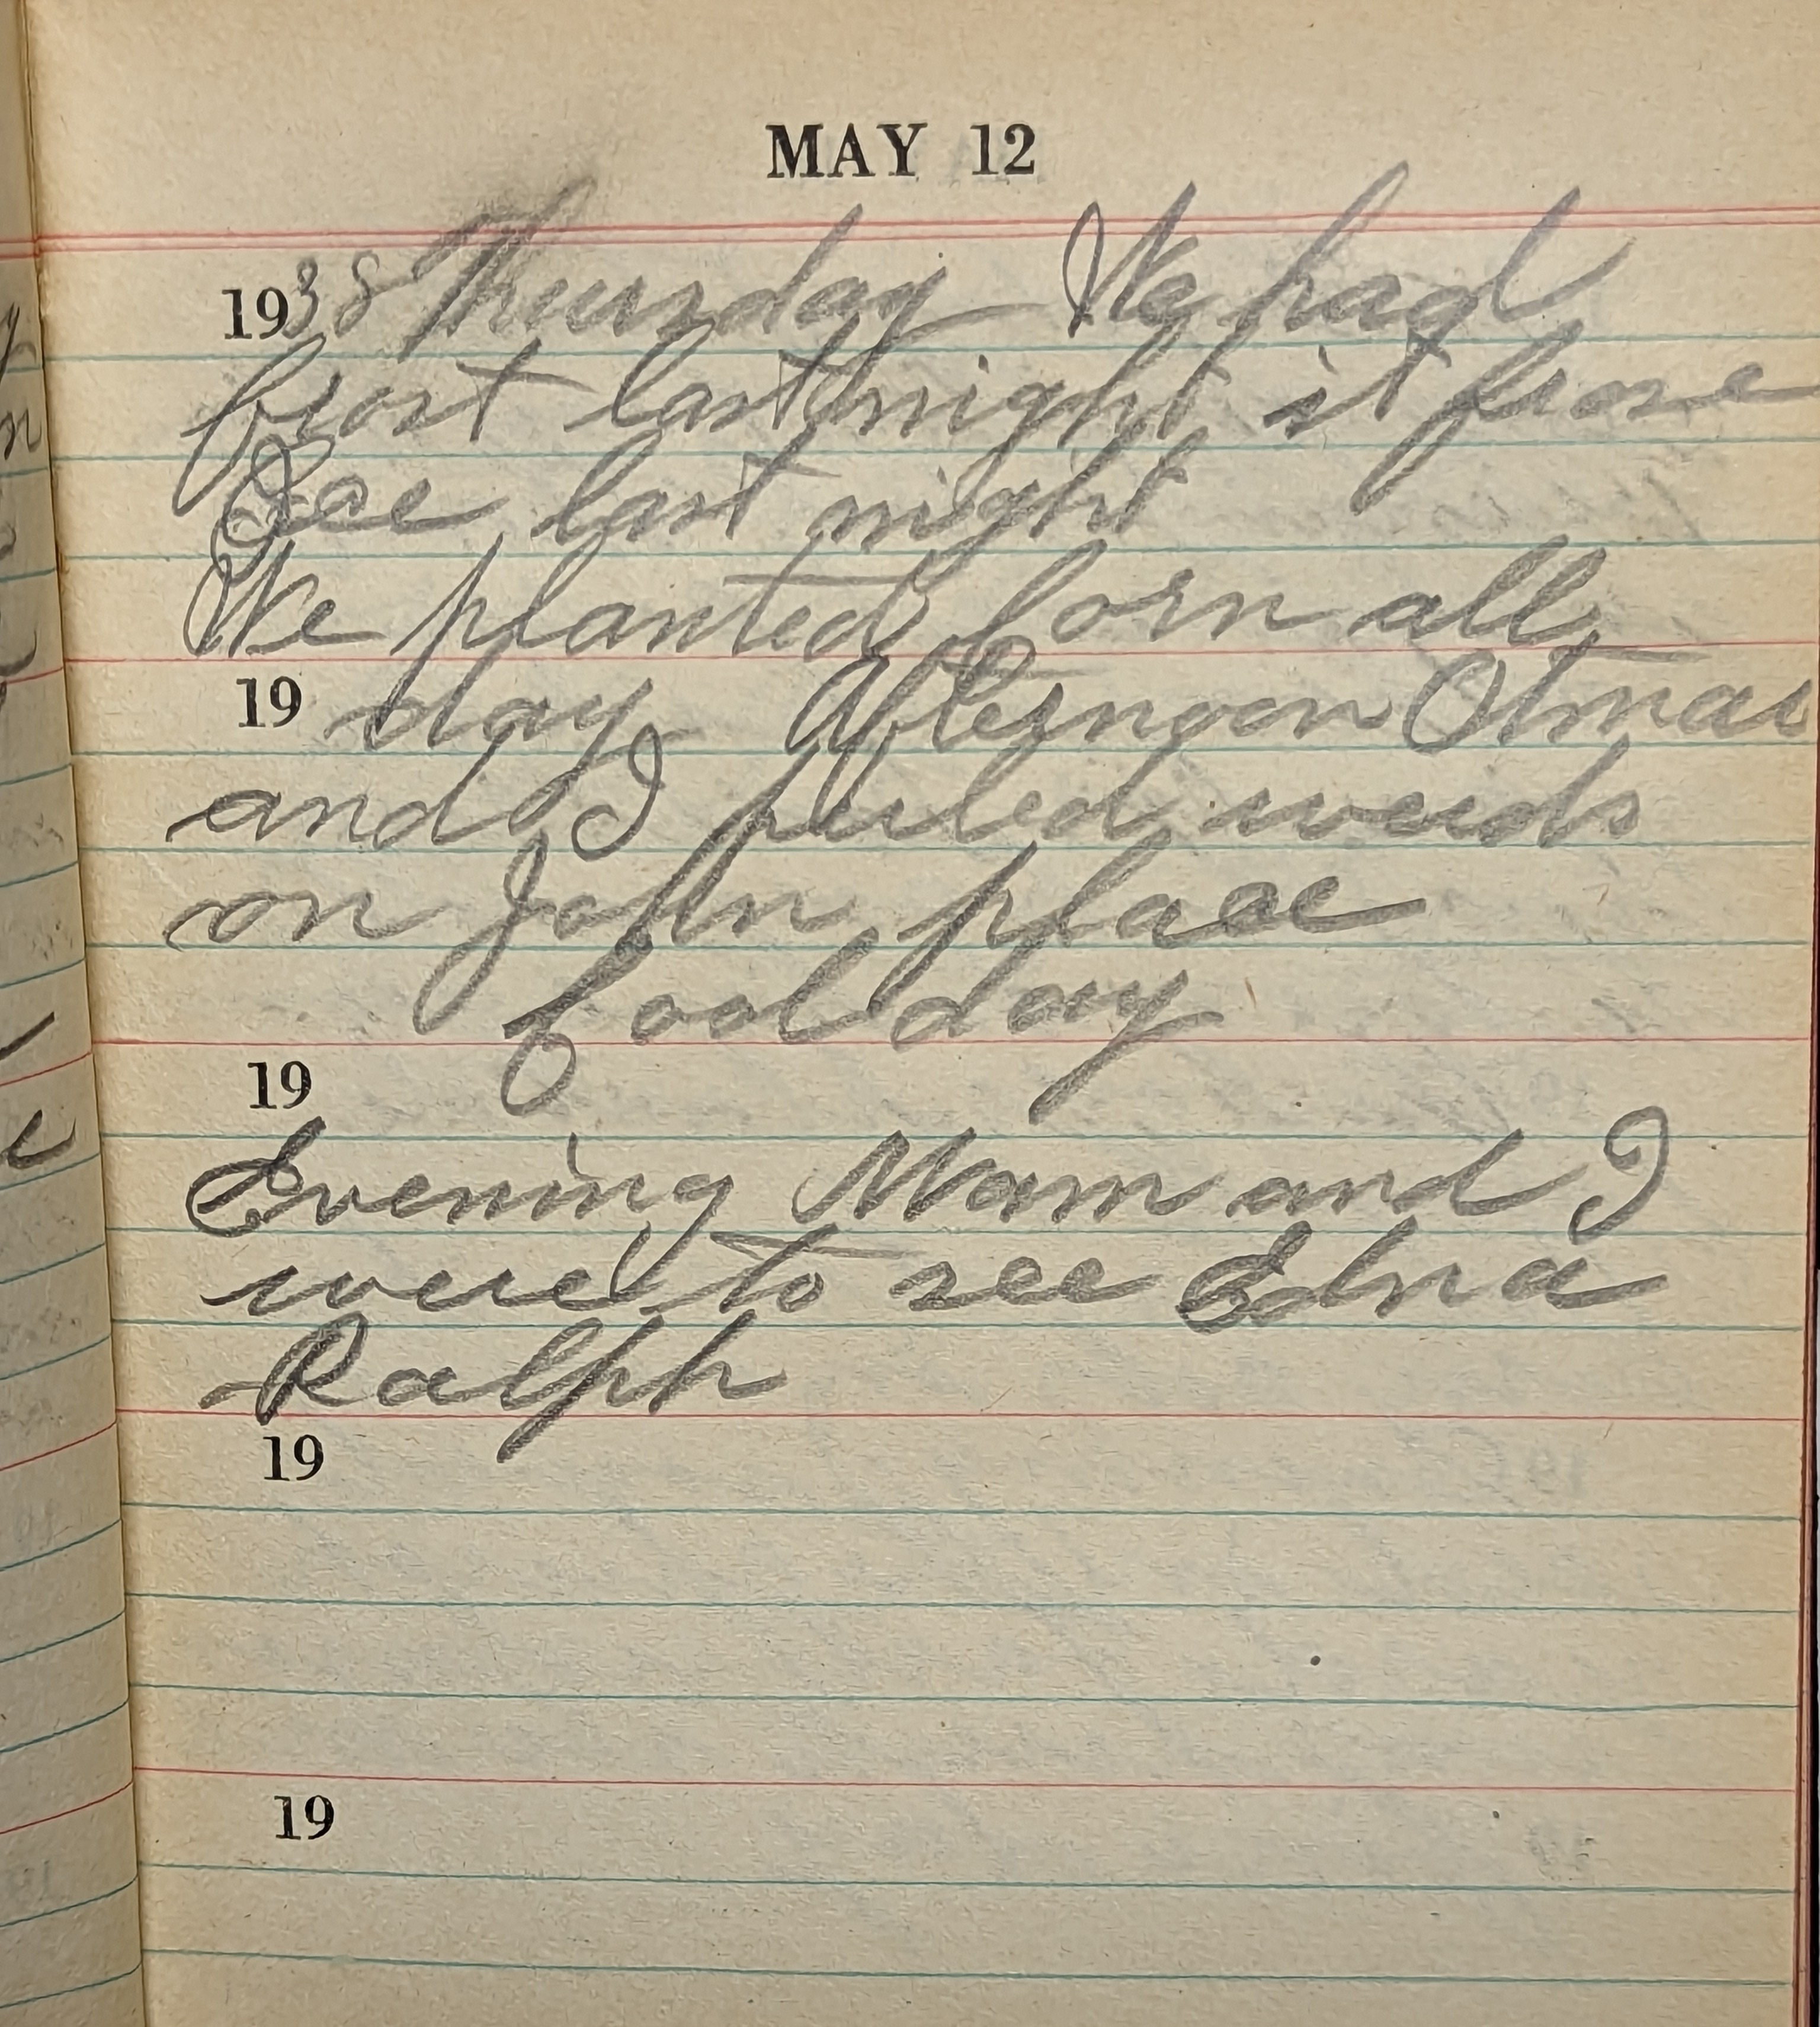 MAY 12
1938 Thursday We had
frost last night it frose
Ice last night
We planted Corn all
19 day Afternoon Otmar
and I puled weeds
on John place
Cool day
19
Evening Mam and I
were to see Edna
Ralph
19
19